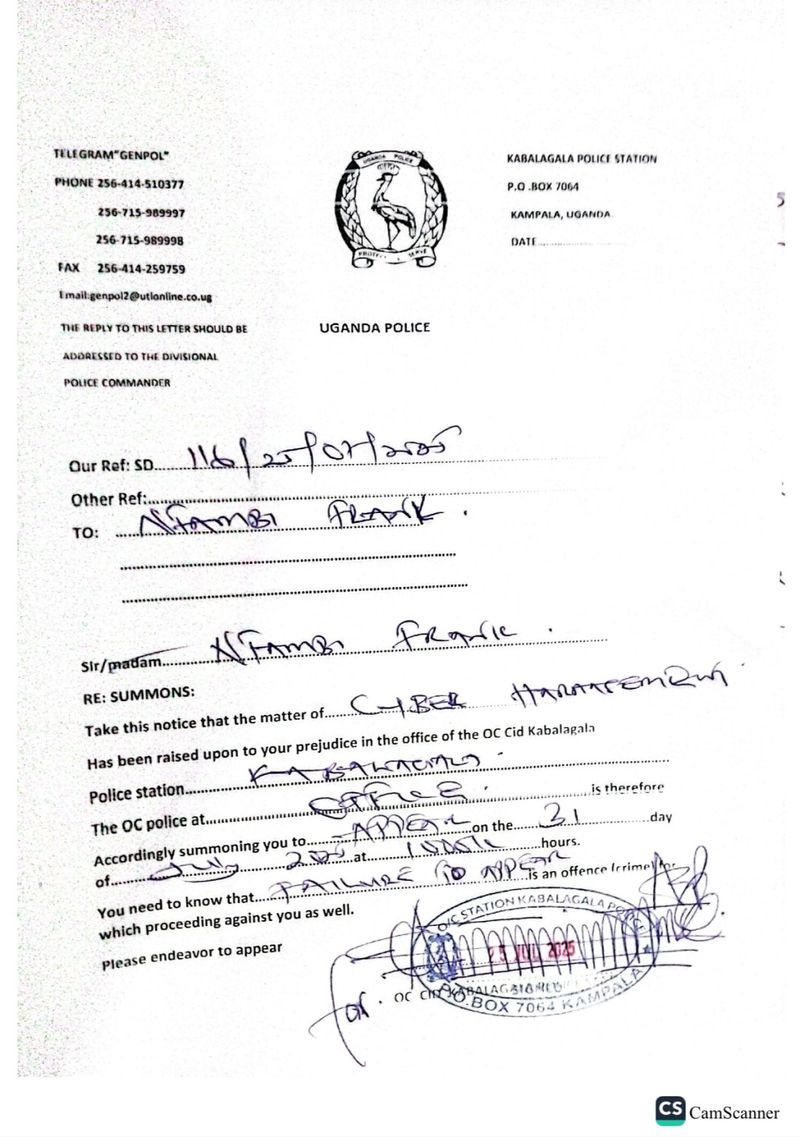 TELEGRAM"GENPOL"
PHONE 256-414-510377
256-715-989997
256-715-989998
FAX 256-414-259759
Email:genpol2@utlonline.co.ug
THE REPLY TO THIS LETTER SHOULD BE
ADDRESSED TO THE DIVISIONAL
POLICE COMMANDER
UGANDA POLICE
PROTECT & SERVE
UGANDA POLICE
KABALAGALA POLICE STATION
P.O .BOX 7064
KAMPALA, UGANDA
DATE
Our Ref: SD 116/25/07/2025
Other Ref:
TO: NTAMBI FRANK.
Sir/madam NTAMBI FRANK.
RE: SUMMONS:
Take this notice that the matter of CYBER
Has been raised upon to your prejudice in the office of the OC Cid Kabalagala
Police station KABALAGALA
The OC police at OFFICE. is therefore
Accordingly summoning you to APPEAR on the 31 day
of July 2025 at hours.
You need to know that FAILURE TO APPEAR is an offence (crime) for
which proceeding against you as well.
Please endeavor to appear
for. OC CID KABALAGALA
O/C STATION KABALAGALA POLICE
25 JUL 2025
P.O.BOX 7064 KAMPALA
CS CamScanner